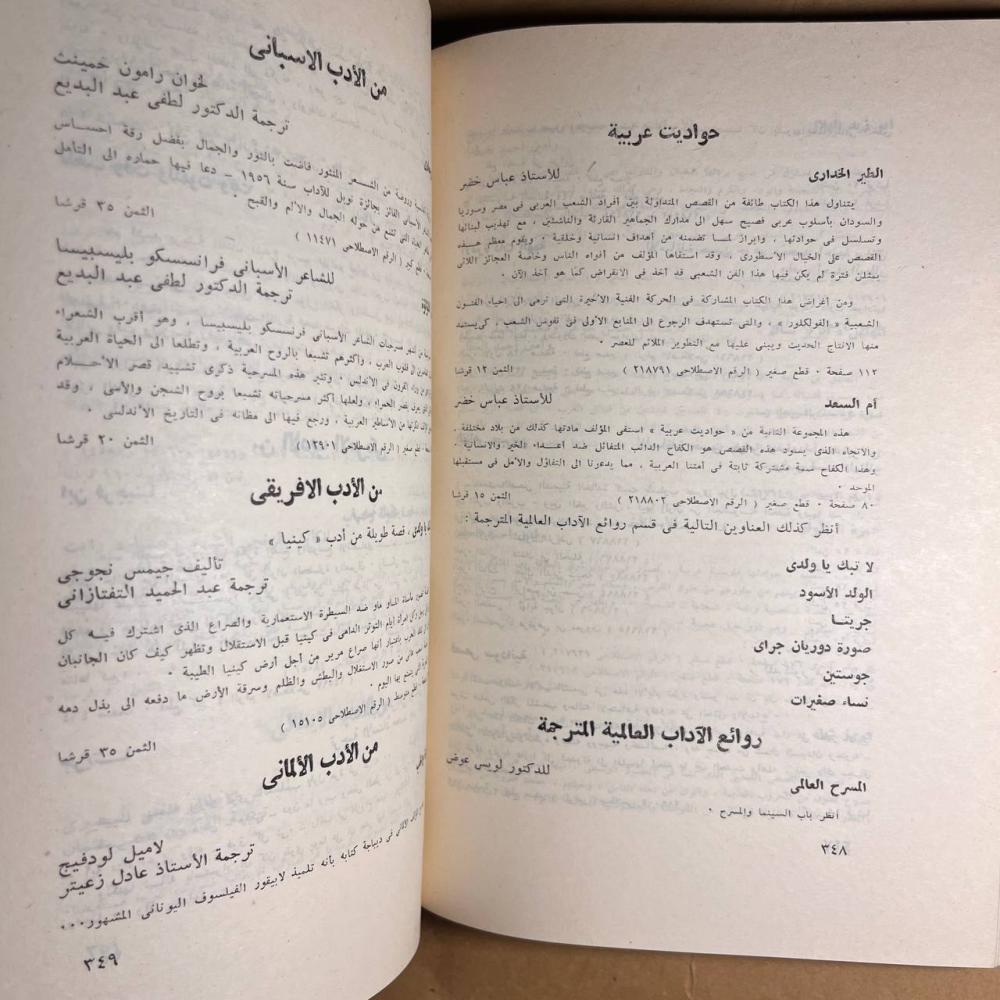 حواديت عربية
الطير الخدارى للأستاذ عباس خضر
يتناول هذا الكتاب طائفة من القصص المتداولة بين أفراد الشعب العربى فى مصر وسوريا
والسودان بأسلوب عربى فصيح سهل الى مدارك الجماهير القارئة والناشئين ، مع تهذيب لبنائها
وتسلسل فى حوادثها ، وابراز لمسا تضمنه من أهداف انسانية وخلقية . ويقوم معظم هـذه
القصص على الخيال الأسطورى ، وقد استقاها المؤلف من أفواه الناس وخاصة العجائز اللائى
يمثلن فترة لم يكن فيها هذا الفن الشعبى قد أخذ فى الانقراض كما هو آخذ الآن .
ومن أغراض هذا الكتاب المشاركة فى الحركة الفنية الأخيرة التى ترمى الى احياء الفنـون
الشعبية « الفولكلور » ، والتى تستهدف الرجوع الى المنابع الأولى فى نفوس الشعب ، كى يستمد
منها الانتاج الحديث ويبنى عليها مع التطوير الملائم للعصر .
١١٢ صفحة . قطع صغير ( الرقم الاصطلاحى ٢١٨٧٩١ ) الثمن ١٢ قرشا
أم السعد للأستاذ عباس خضر
هذه المجموعة الثانية من « حواديت عربية » استقى المؤلف مادتها كذلك من بلاد مختلفة .
والاتجاه الذى يسود هذه القصص هو الكفاح الدائب المتفائل ضد أعـداء الخير والانسانية .
وهذا الكفاح سمة مشتركة ثابتة فى أمتنا العربية ، مما يدعونا الى التفاؤل والأمل فى مستقبلها
الموحد .
٨٠ صفحة . قطع صغير ( الرقم الاصطلاحى ٢١٨٨٠٢ ) الثمن ١٥ قرشا
أنظر كذلك العناوين التالية فى قسم روائع الآداب العالمية المترجمة :
لا تبك يا ولدى
الولد الأسود
جريتـا
صورة دوريان جراى
جوستين
نساء صغيرات
روائع الآداب العالمية المترجمة
المسرح العالمى للدكتور لويس عوض
أنظر باب السينما والمسرح .
٣٤٨
من الأدب الاسبانى
لخوان رامون خمينث
ترجمة الدكتور لطفى عبد البديع
من الشـعر المنثور فاضت بالنور والجمال بفضل رقة احسـاس
الأسبانى الفائز بجائزة نوبل للآداب سنة ١٩٥٦ - دعا فيها حماره الى التأمل
التى تنبع من حوله الجمال والألم والقبح .
قطع كبير ( الرقم الاصطلاحى ١١٤٧١ ) الثمن ٣٥ قرشا
للشاعر الأسبانى فرانسسكو بليسبيسا
ترجمة الدكتور لطفى عبد البديع
مسرحيات الشاعر الأسبانى فرنسسكو بليسبيسا ، وهو أقرب الشعراء
الى قلوب العرب ، وأكثرهم تشبعا بالروح العربية ، وتطلعا الى الحياة العربية
من وراء القرون فى الأندلس . وتثير هذه المسرحية ذكرى تشييد قصر الأحـلام
بقصر الحمراء ، ولعلها أكثر مسرحياته تشبعا بروح الشجن والأسى ، وقد
من الأساطير العربية ، ورجع فيها الى مظانه فى التاريخ الأندلسى .
قطع صغير ( الرقم الاصطلاحى ١٢٩٠١ ) الثمن ٢٠ قرشا
من الأدب الافريقى
يا ولدى ، قصة طويلة من أدب « كينيا »
تأليف جيمس نجوجى
ترجمة عبد الحميد التفتازانى
مأساة الماو ماو ضد السيطرة الاستعمارية والصراع الذى اشترك فيـه كل
أيام التوتر الدامى فى كينيا قبل الاستقلال وتظهر كيف كان الجانبان
باعتبار أنها صراع مرير من أجل أرض كينيا الطيبة .
من صور الاستغلال والبطش والظلم وسرقة الأرض ما دفعه الى بذل دمه
بها اليوم .
قطع متوسط ( الرقم الاصطلاحى ١٥١٠٥ ) الثمن ٣٥ قرشا
من الأدب الألمانى
لاميل لودفيج
ترجمة الأستاذ عادل زعيتر
فى ديباجة كتابه بأنه تلميذ لابيقور الفيلسوف اليونانى المشهور...
٣٤٩